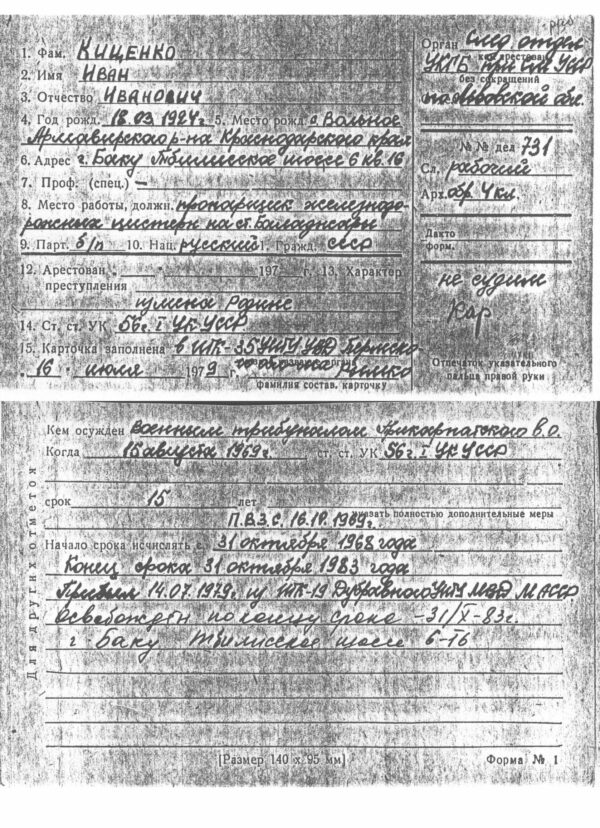 1. Фам. КИЦЕНКО
2. Имя ИВАН
3. Отчество ИВАНОВИЧ
4. Год рожд. 18.03.1924г. 5. Место рожд. с. Вольное
Армавирского р-на Краснодарского края
6. Адрес г. Баку Тбилисское шоссе 6 кв. 16
7. Проф. (спец.) —
8. Место работы, должн. пропарщик железнодо-
рожных цистерн на ст. Баладжары
9. Парт. б/п 10. Нац. русский 11. Гражд. СССР
12. Арестован 197 г. 13. Характер
преступления
измена Родине
14. Ст. ст. УК 56 г. I УК УССР
15. Карточка заполнена в ИТК-35
16 июля 1979 г.
фамилия состав. карточку
Орган след отдел
кем арестован
УКГБ при СМ УССР
без сокращений
по Львовской обл.
№№ дел 731
Сл. рабочий
Арх. обр. 4 кл.
Дакто
форм.
не судим
Кар
Отпечаток указательного
пальца правой руки
Для других отметок
Кем осужден военным трибуналом Прикарпатского в.о.
Когда 15 августа 1969г. ст. ст. УК 56 г. I УК УССР
срок 15 лет
указать полностью дополнительные меры
П.В.З.С. 16.10.1969г.
Начало срока исчислять с 31 октября 1968 года
Конец срока 31 октября 1983 года
Прибыл 14.07.1979г. из ИТК-19 Дубравного УИТУ МВД МАССР
освобожден по концу срока - 31/X-83г.
г. Баку Тбилисское шоссе 6-16
[Размер 140 х 95 мм] Форма № 1